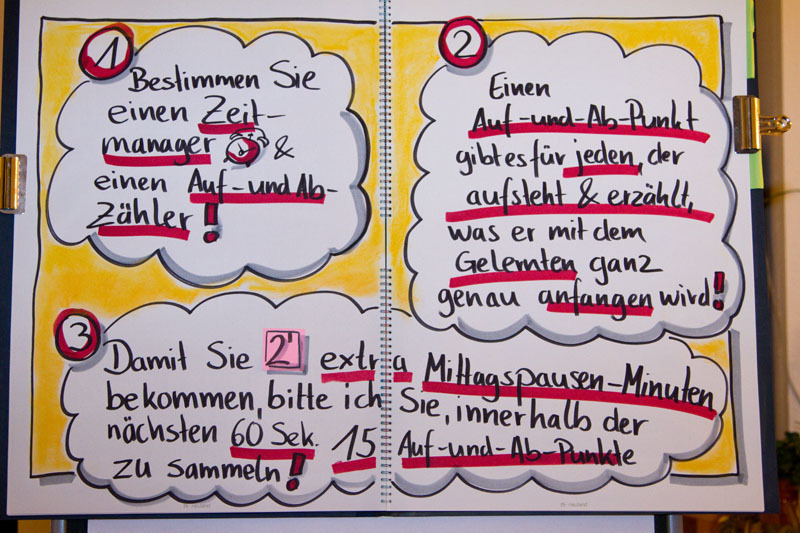 1
Bestimmen Sie
einen Zeit-
manager &
einen Auf-und Ab-
Zähler!
2
Einen
Auf-und-Ab-Punkt
gibt es für jeden, der
aufsteht & erzählt,
was er mit dem
Gelernten ganz
genau anfangen wird!
3
Damit Sie 2' extra Mittagspausen-Minuten
bekommen, bitte ich Sie, innerhalb der
nächsten 60 Sek. 15 Auf-und-Ab-Punkte
zu sammeln!